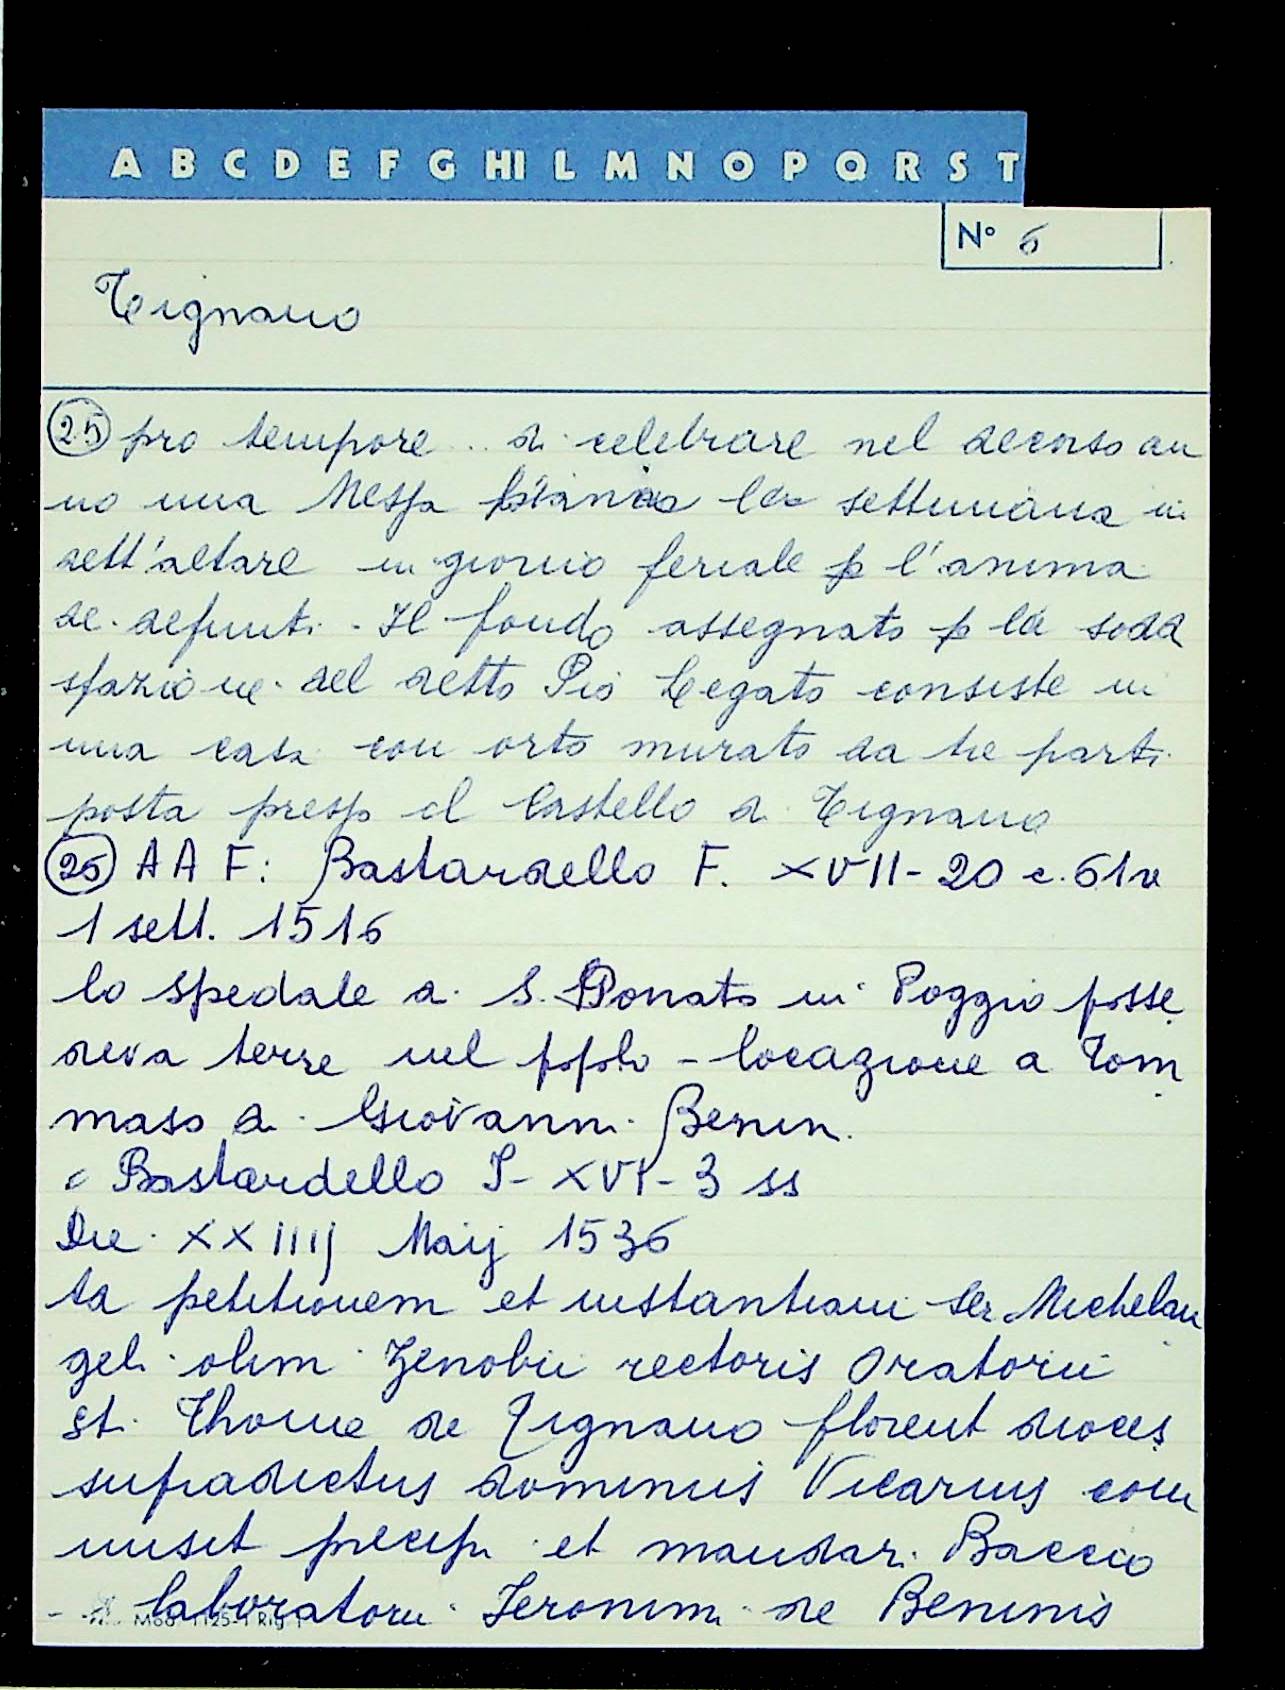 A B C D E F G HI L M N O P Q R S T
N° 6
Tignano
25 pro tempore .. di celebrare nel decorso an
no una Messa piana la settimana in
dett'altare in giorno feriale p l'anima
de defunti. Il fondo assegnato p la sodd
sfazione del detto Pio Legato consiste in
una casa con orto murato da tre parti
posta presso il Castello di Tignano
26 A A F: Bastardello F. XVII - 20 c. 61v
1 sett. 1516
lo spedale di S. Donato in Poggio posse
deva terre nel popolo - locazione a Tom
maso di Giovanni Benin.
c Bastardello I - XVI - 3 ss
Die XXIIIJ Maij 1536
ta petitionem et instantiam ser Michelan
geli olim Zenobii rectoris Oratorii
st. Thome de Tignano florent dioces
supradictus dominus Vicarius com
misit precepi et mandar. Baccio
laboratori Jeronimi de Beninis
Mod. 1125-1 Rig. 1